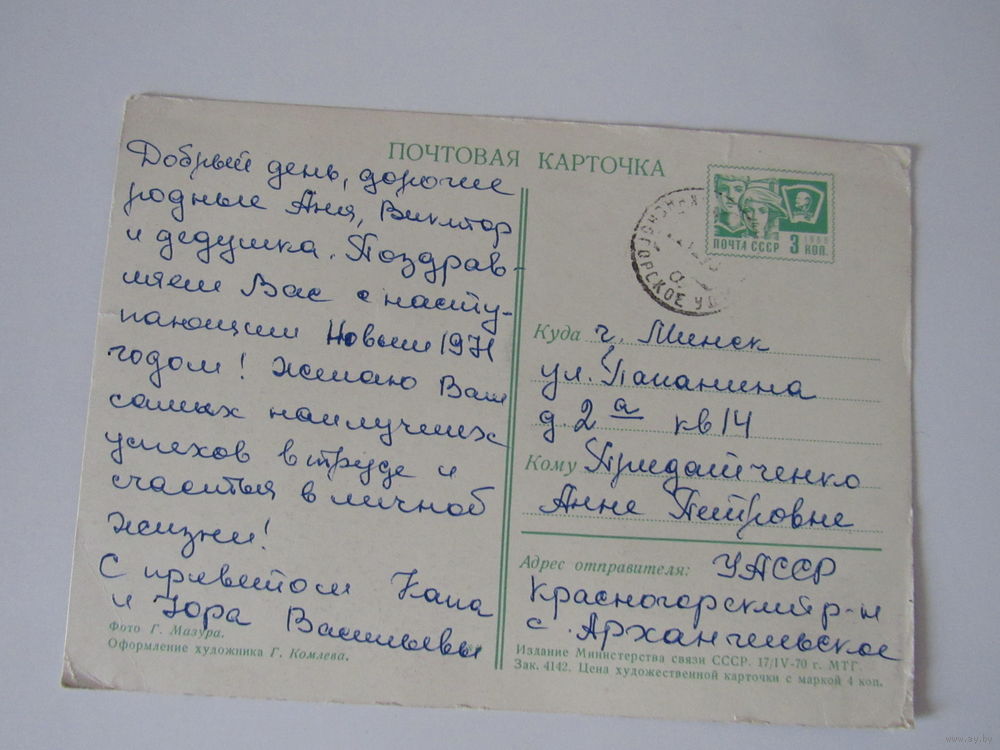 ПОЧТОВАЯ КАРТОЧКА
Добрый день, дорогие
родные Аня, Виктор
и дедушка. Поздрав-
ляем Вас с насту-
пающим Новым 1971
годом! Желаю Вам
самых наилучших
успехов в труде и
счастья в личной
жизни!
С приветом Капа
и Юра Васильевы
Фото Г. Мазура.
Оформление художника Г. Комлева.
ПОЧТА СССР 3 КОП.
1966
ГОРСКОЕ
Куда г. Минск
ул. Папанина
д. 2 а кв 14
Кому Придатченко
Анне Петровне
Адрес отправителя: УАССР
Красногорский р-н
с. Архангельское
Издание Министерства связи СССР. 17/IV-70 г. МТГ.
Зак. 4142. Цена художественной карточки с маркой 4 коп.
www.ay.by